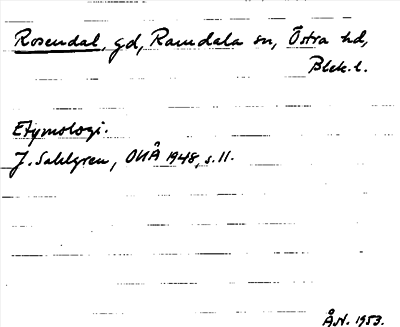 Rosendal, gd, Ramdala sn, Östra hd,
Blek. l.
Etymologi.
J. Sahlgren, OUÅ 1948, s. 11.
Å.N. 1953.